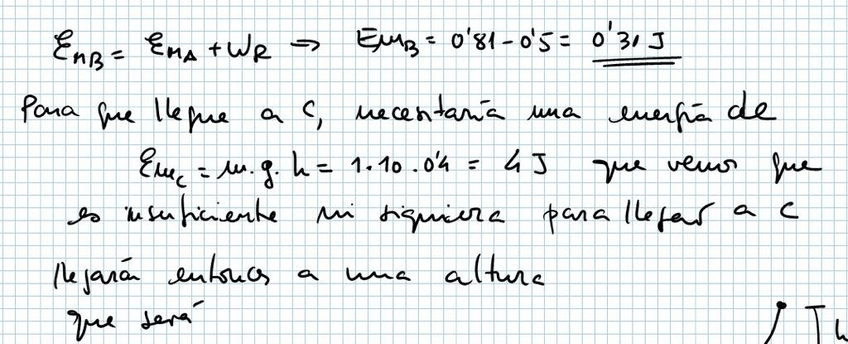 EMB = EMA + WR ⇒ EMB = 0'81 - 0'5 = 0'31 J
Para que llegue a C, necesitaría una energía de
EMC = m.g.h = 1.10.0'4 = 4 J que vemos que
es insuficiente ni siquiera para llegar a C
llegará entonces a una altura
que será
h